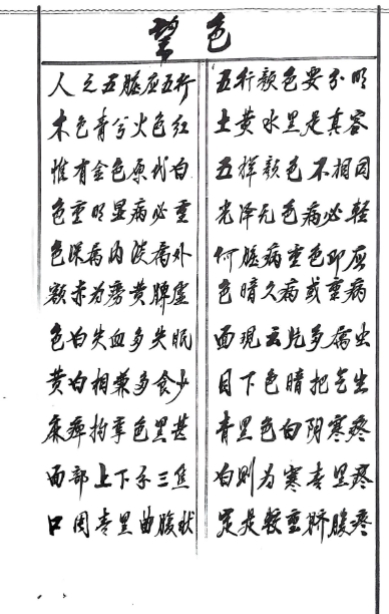 望色
人之五脏应五行 五行颜色要分明
木色青兮火色红 土黄水黑是真容
惟有金色原代白 五样颜色不相同
色重明显病必重 光泽无色病必轻
色深病内浅病外 何脏病重色即应
额赤为黄脾虚 色暗久病或重病
色白失血多失眠 面現云片多虫
黄白相兼多食少 目下色暗把气生
麻痹拘挛色黑甚 青黑色白阴寒疼
面部上下三焦 白则为寒青黑疼
口周青黑曲腹状 定是较重脐腹疼